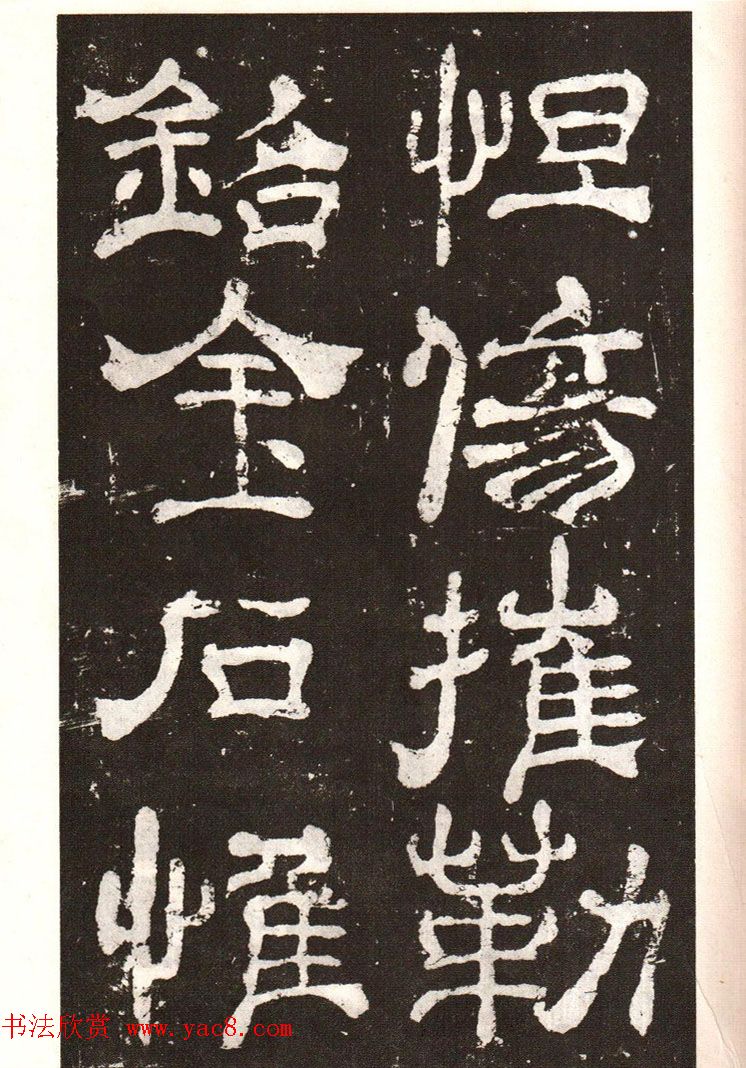 怛傷摧勒
銘金石惟
书法欣赏 www.yac8.com